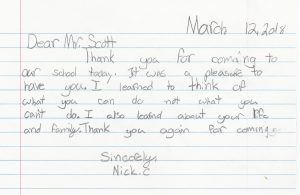 March 12, 2018
Dear Mr. Scott
Thank you for coming to
our school today. It was a pleasure to
have you. I learned to think of
what you can do not what you
cant do. I also learnd about your life
and family. Thank you again for coming.
Sincerely,
Nick. C